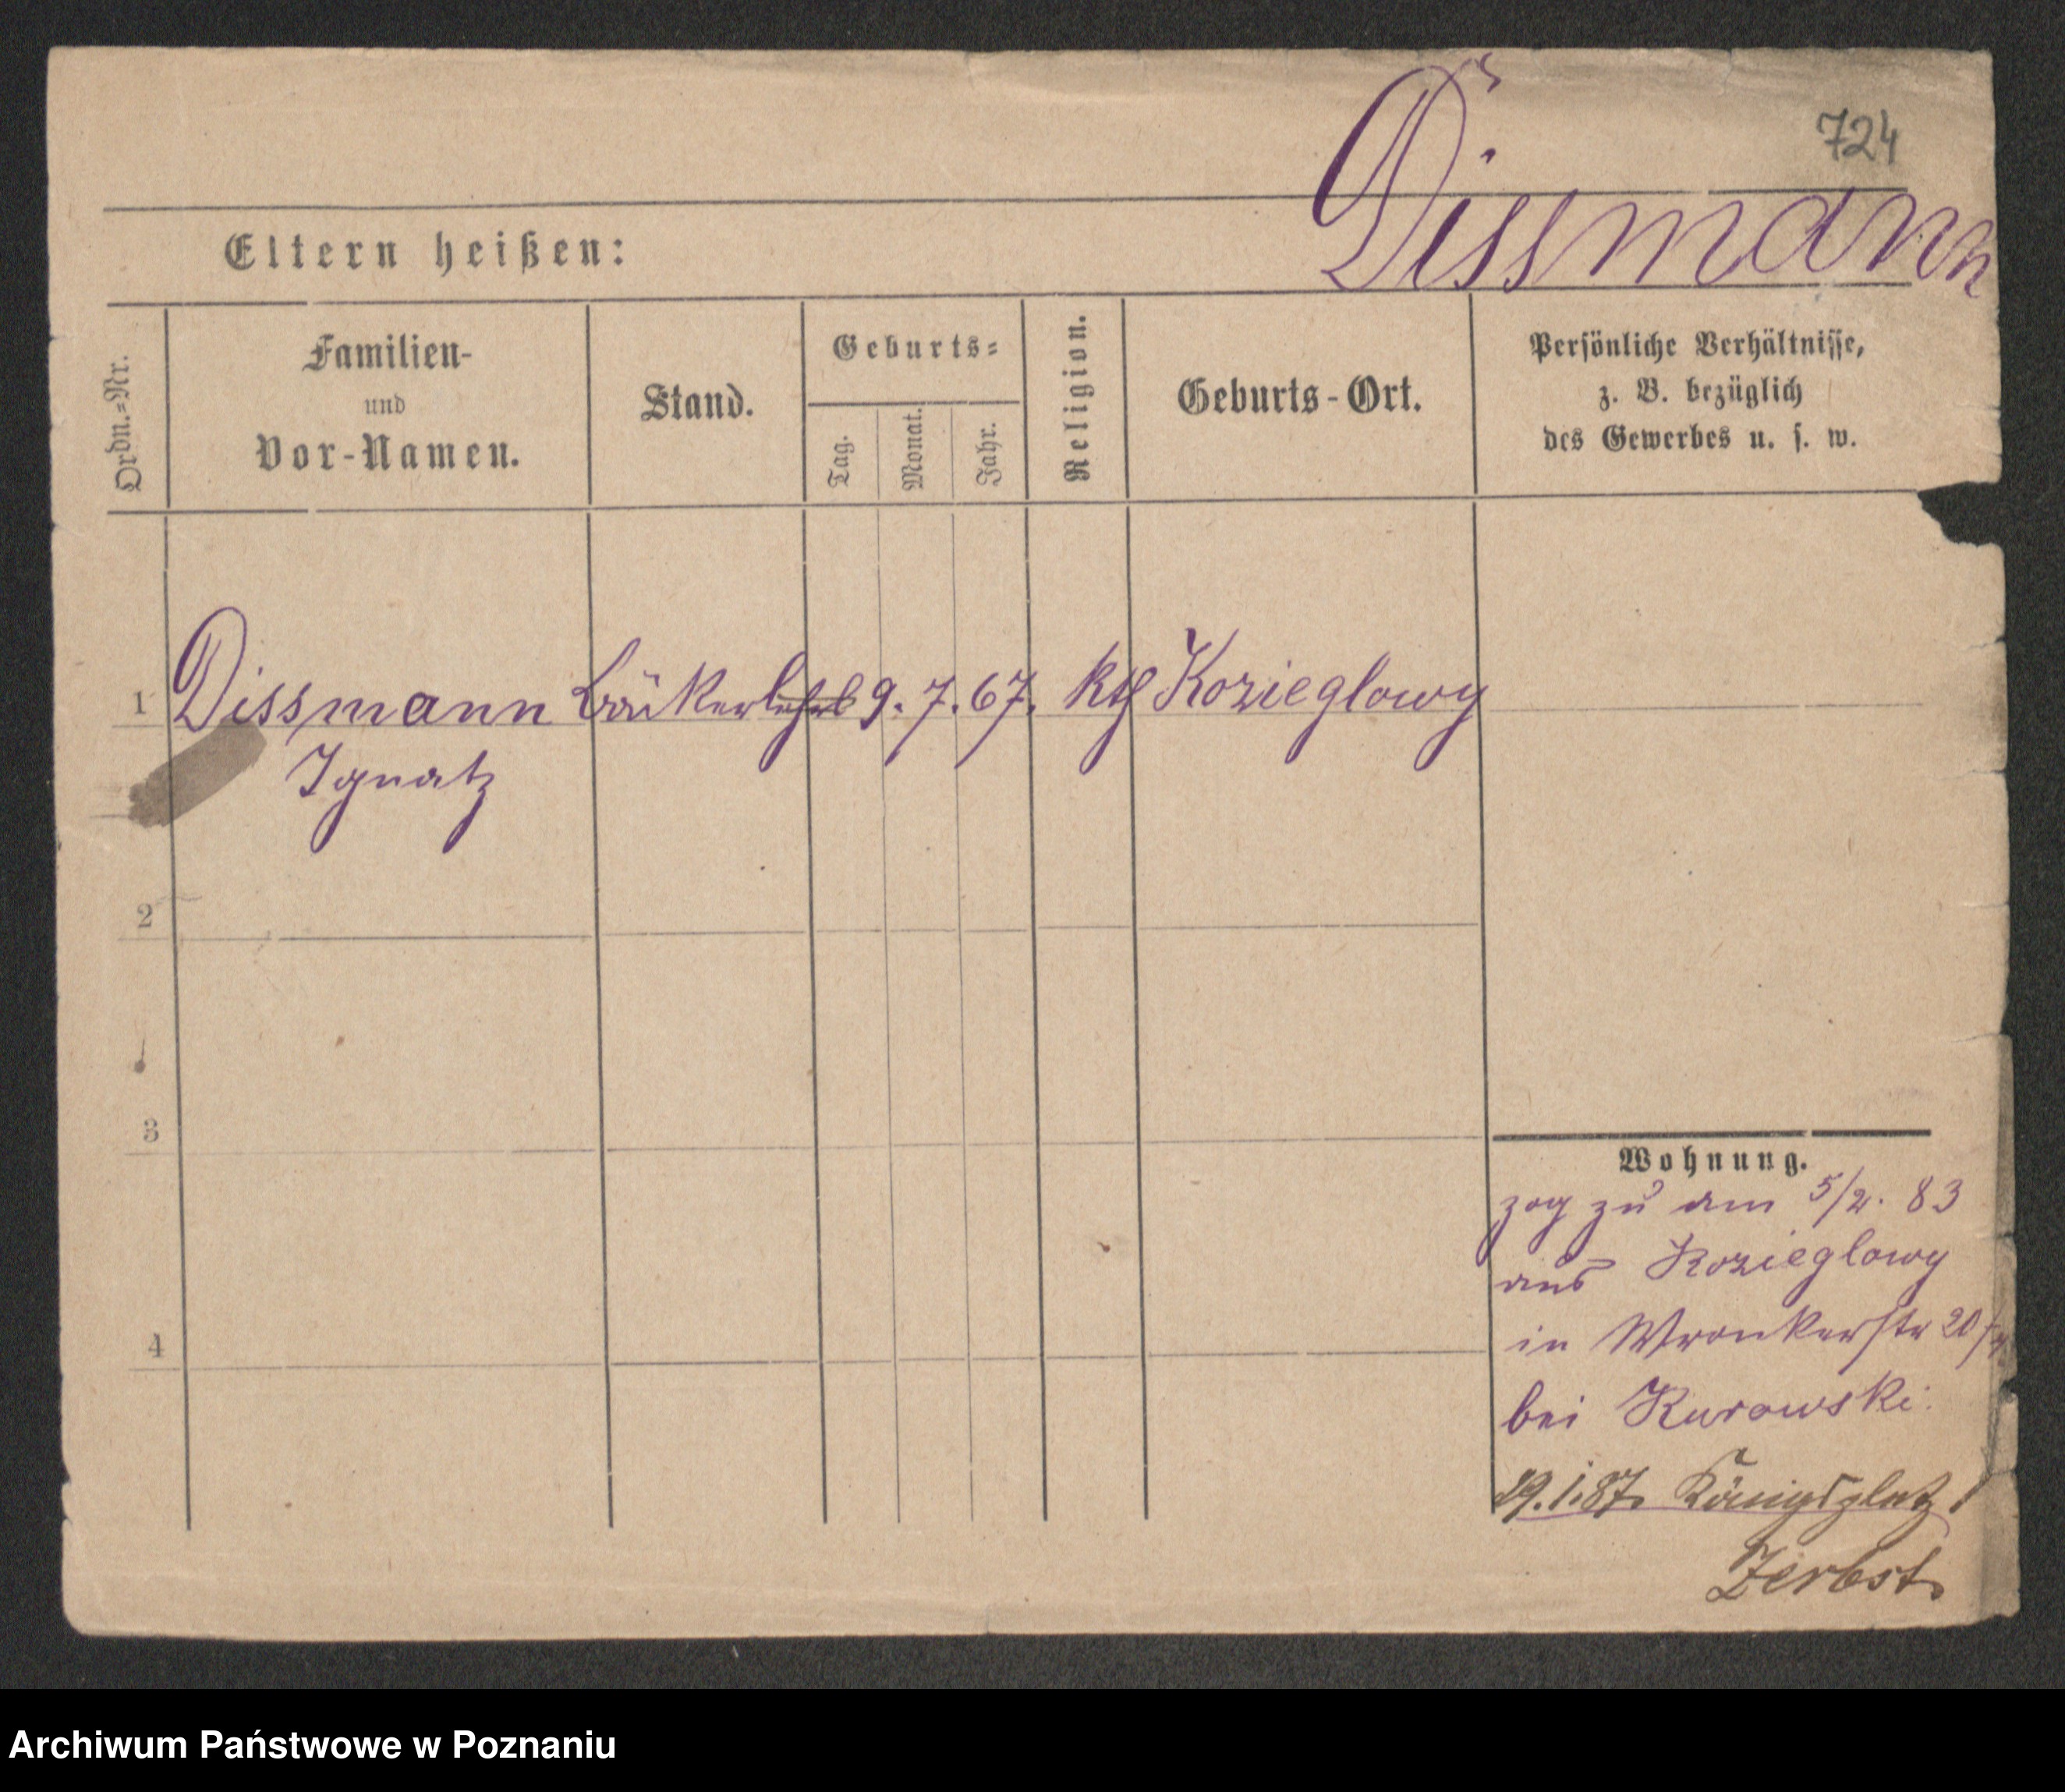 724
Dissmann
Eltern heißen:
Ordn.=Nr.
Familien-
und
Vor-Namen.
Stand.
Geburts=
Tag.
Monat.
Jahr.
Religion.
Geburts-Ort.
Persönliche Verhältnisse,
z. B. bezüglich
des Gewerbes u. s. w.
1 Dissmann Bäkerlehrl 9. 7. 67. kth Kozieglowy
Ignatz
2
3
4
Wohnung.
zog zu am 5/2. 83
aus Kozieglowy
in Wronkerstr 20
bei Kurowski.
19.1.87. Königsplatz
Zerbst.
Archiwum Państwowe w Poznaniu